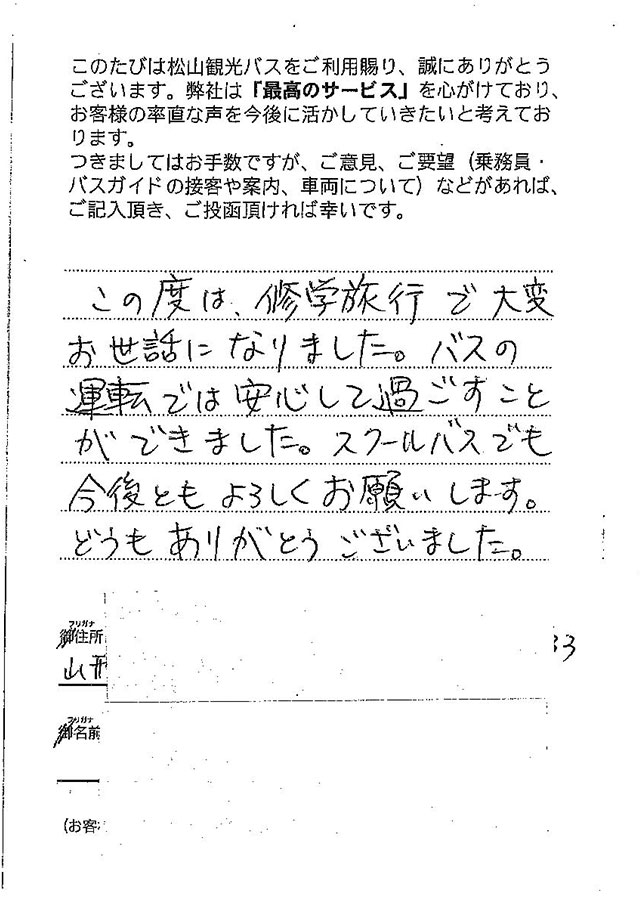 このたびは松山観光バスをご利用賜り、誠にありがとう
ございます。弊社は「最高のサービス」を心がけており、
お客様の率直な声を今後に活かしていきたいと考えてお
ります。
つきましてはお手数ですが、ご意見、ご要望（乗務員・
バスガイドの接客や案内、車両について）などがあれば、
ご記入頂き、ご投函頂ければ幸いです。
この度は、修学旅行で大変
お世話になりました。バスの
運転では安心して過ごすこと
ができました。スクールバスでも
今後ともよろしくお願いします。
どうもありがとうございました。
フリガナ
御住所
山形
33
フリガナ
御名前
(お客